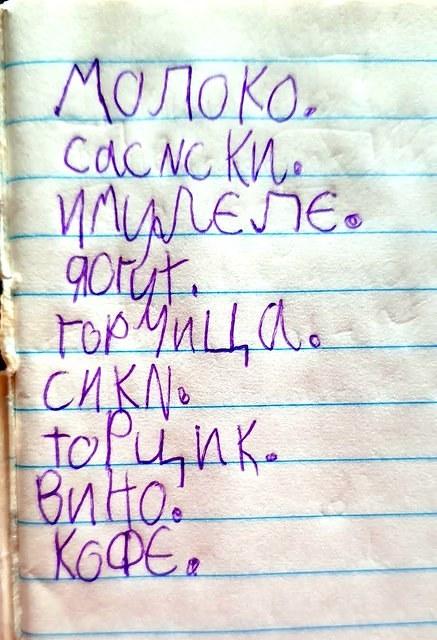 МОЛОКО.
сасиски.
имулеле.
яогут.
горчица.
сики.
торщик.
вино.
кофе.